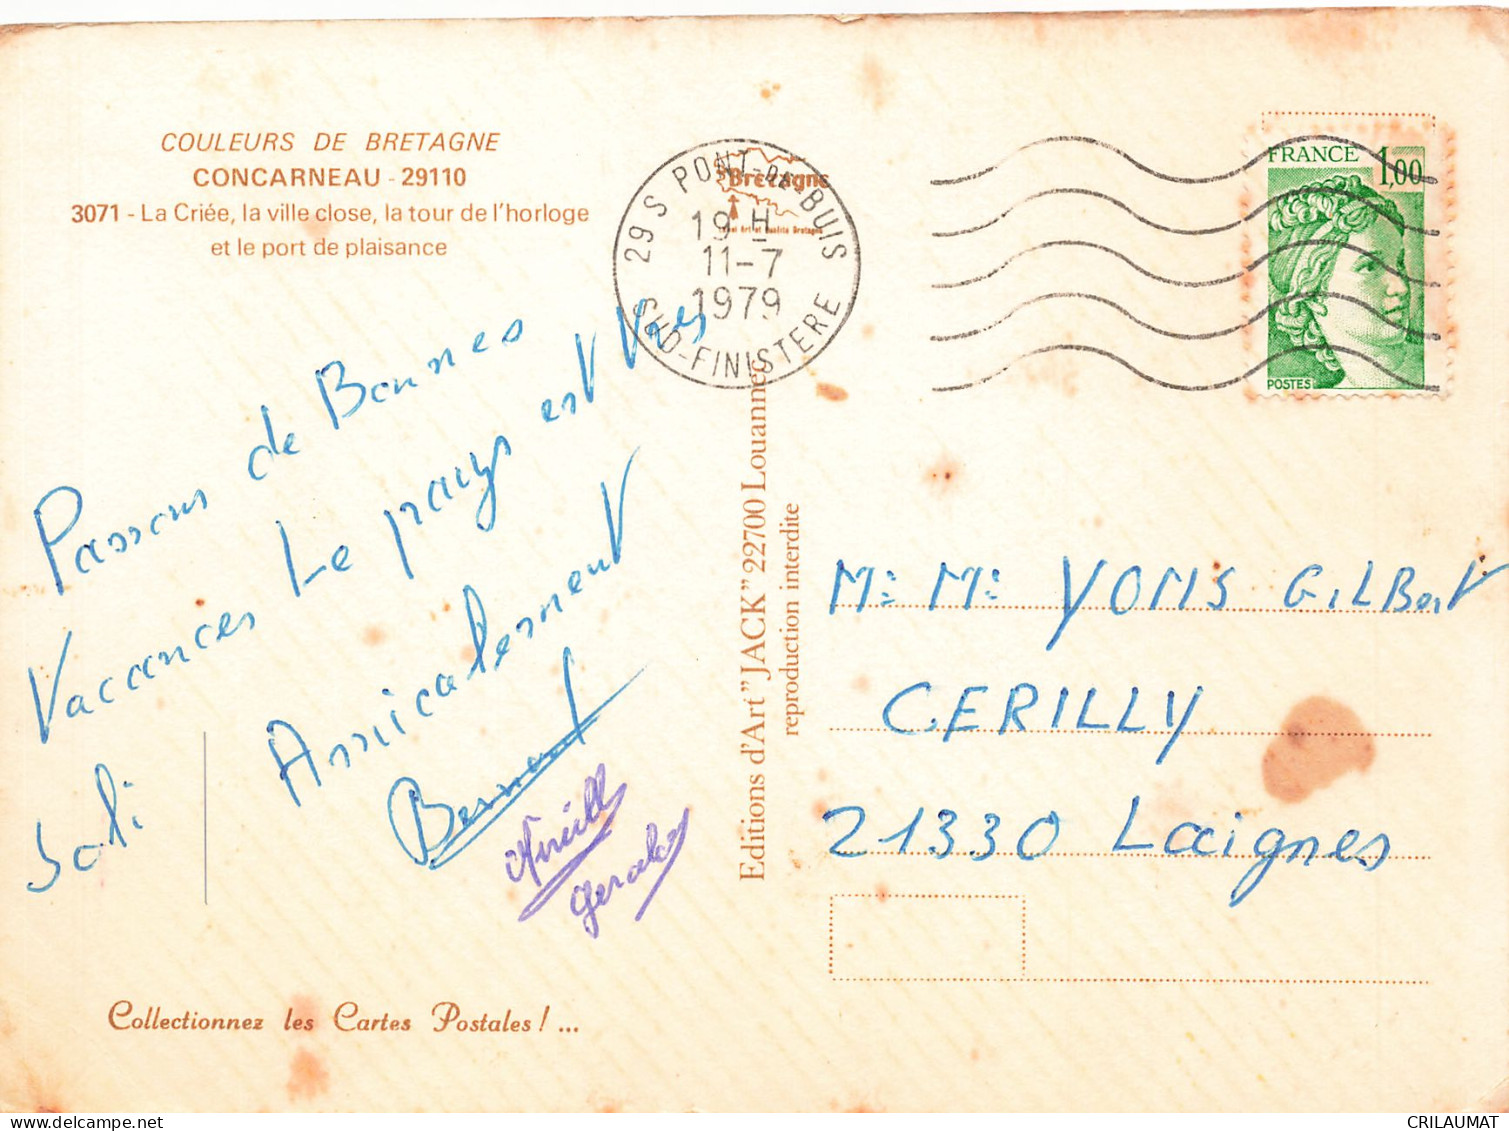 COULEURS DE BRETAGNE
CONCARNEAU - 29110
3071 - La Criée, la ville close, la tour de l'horloge
et le port de plaisance
29 S PONT-DE-BUIS
19 H
11-7
1979
SUD-FINISTERE
Bretagne
FRANCE 1,00
POSTES
Passons de Bonnes
Vacances Le pays est très
Joli
Amicalement
Bernard
Editions d'Art "JACK" 22700 Louannec
reproduction interdite
M: M: YONS GiLBert
CERILLY
21330 Laignes
Collectionnez les Cartes Postales ! ...
CRILAUMAT